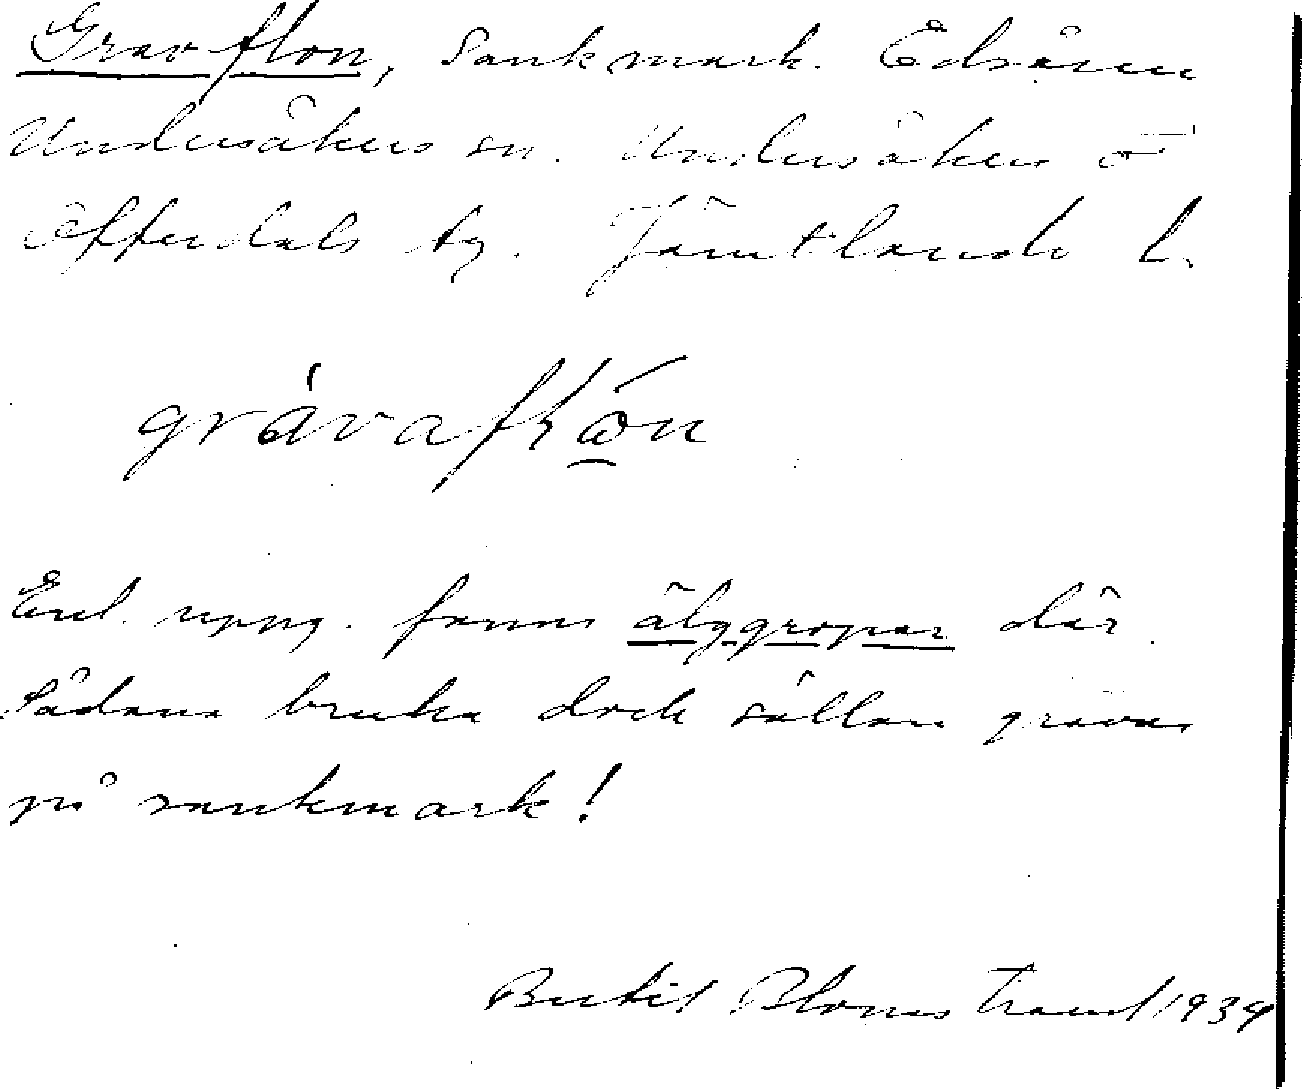 Gravflon, Sankmark. Edsåsen
Undersåkers sn. Undersåkers o
Offerdals tg. Jämtlands l.
Enl. uppg. fanns älggropar där.
Sådana bruka dock sällan grävas
på sankmark!
Bertil Blomstrand 1934